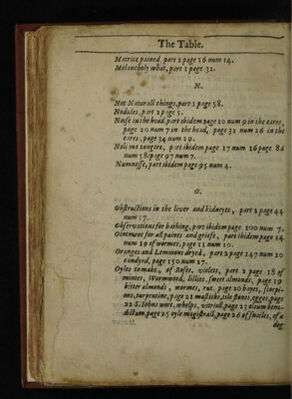 The Table.
Matrice pained part 2 page 16 num 14.
Melancholy what, part 1 page 32.
N.
Not Naturall things, part 1 page 58.
Nodules, part 2 page 5.
Noise in the head part ibidem page 10 num 9 in the eares,
page 20 num 7 in the head, page 32 num 26 in the
eares, page 34 num 29.
Noli me tangere, part ibidem page 17 num 16 page 8
num 58 page 97 num 7.
Numnesse, part ibidem page 95 num 4.
O.
Obstructions in the liver and kidneyes, part 2 page 44
num 17.
Observations for bathing, part ibidem page 100 num 7.
Ointment for all paines and griefs, part ibidem page 14
num 19 of wormes, page 11 num 10.
Oranges and Lemmons dryed, part 2 page 147 num 20
candyed, page 150 num 27.
Oyles to make, of Roses, violets, part 2 page 18 of
mintes, Wormwood, lillies, sweet almonds, page 19
bitter almonds, wormes, rue, page 20 bayes, scorpi-
ons, turpentine, page 21 mastiche, tile stones, egges, page
22 S. Johns wort, whelps, vitrioll, page 23 oleum bene-
dictum, page 25 oyle magistrall, page 26 of fusiles, of a
dog